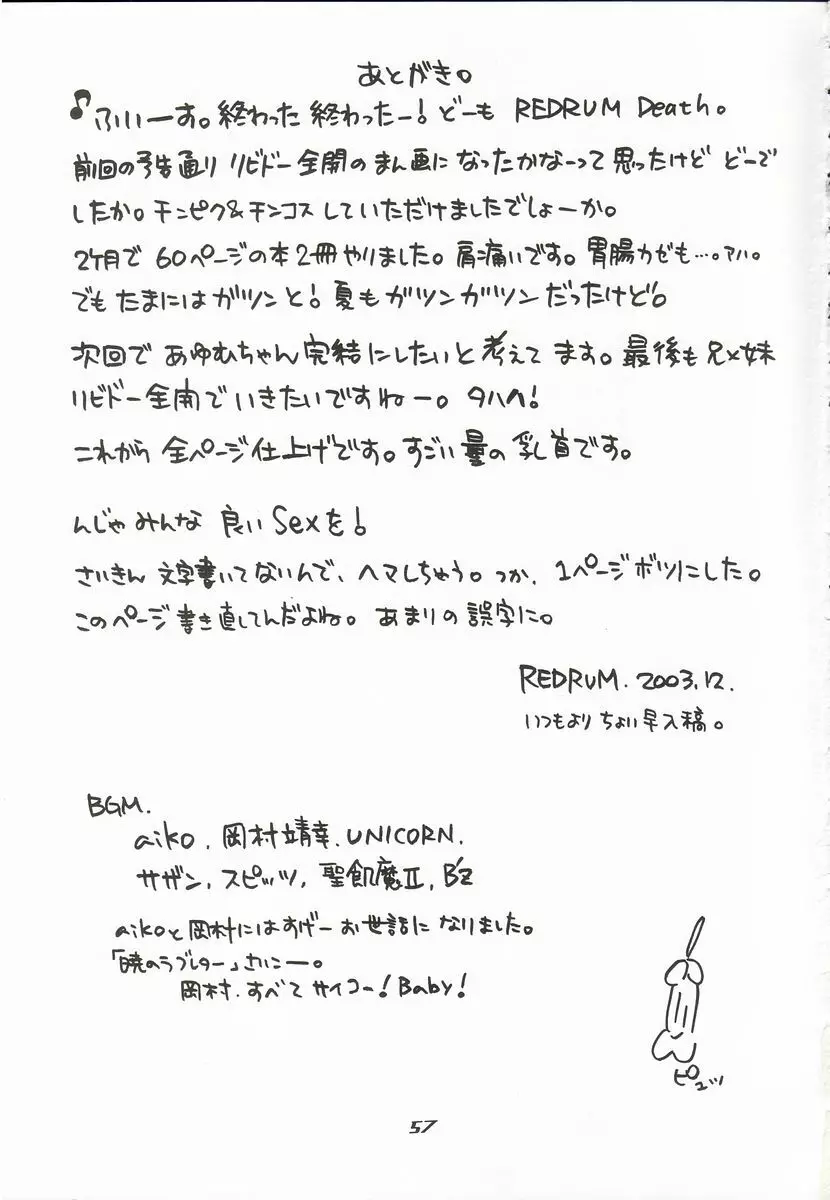 あとがき。
♪ふいーす。終わった 終わったー!どーも REDRUM Death。
前回の予告通り リビドー全開のまん画に なったかなーって 思ったけど どーで
したか。チンピク&チンコス していただけましたでしょーか。
2ケ月で 60ページの本2冊やりました。肩痛いです。胃腸カゼも…。アハ。
でも たまにはガツンと!夏も ガツンガツンだったけど。
次回で あゆむちゃん完結にしたいと 考えて ます。最後も 兄×妹
リビドー全開で いきたいですねー。タハハ!
これから 全ページ仕上げです。すごい 量の 乳首です。
んじゃ みんな 良い Sexを!
さいきん 文字書いてないんで、ヘマしちゃう。つか、1ページボツにした。
このページ書き直してんだよね。あまりの 誤字に。
REDRUM. 2003.12.
いつもより ちょい早入稿。
BGM.
aiko. 岡村靖幸. UNICORN.
サザン, スピッツ, 聖飢魔II, B'z
aikoと 岡村にはすげー お世話に なりました。
「暁のラブレター」さいこー。
岡村. すべて サイコー!Baby!
ピュッ
57